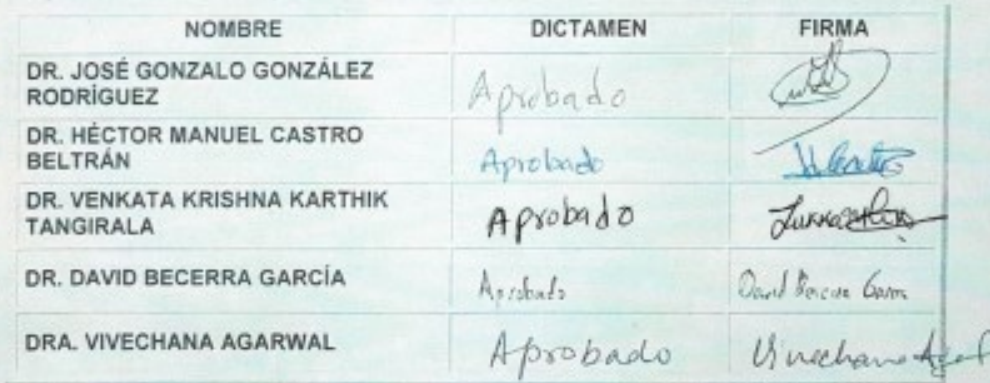 NOMBRE DICTAMEN FIRMA
DR. JOSÉ GONZALO GONZÁLEZ
RODRÍGUEZ Aprobado
DR. HÉCTOR MANUEL CASTRO
BELTRÁN Aprobado
DR. VENKATA KRISHNA KARTHIK
TANGIRALA Aprobado
DR. DAVID BECERRA GARCÍA Aprobado David Becerra García
DRA. VIVECHANA AGARWAL Aprobado Vivechana